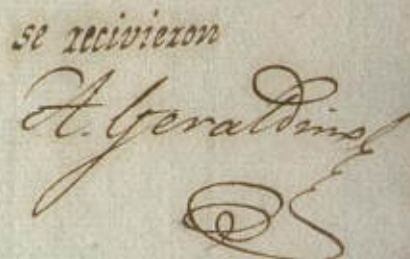 se recivieron
A. Geraldino